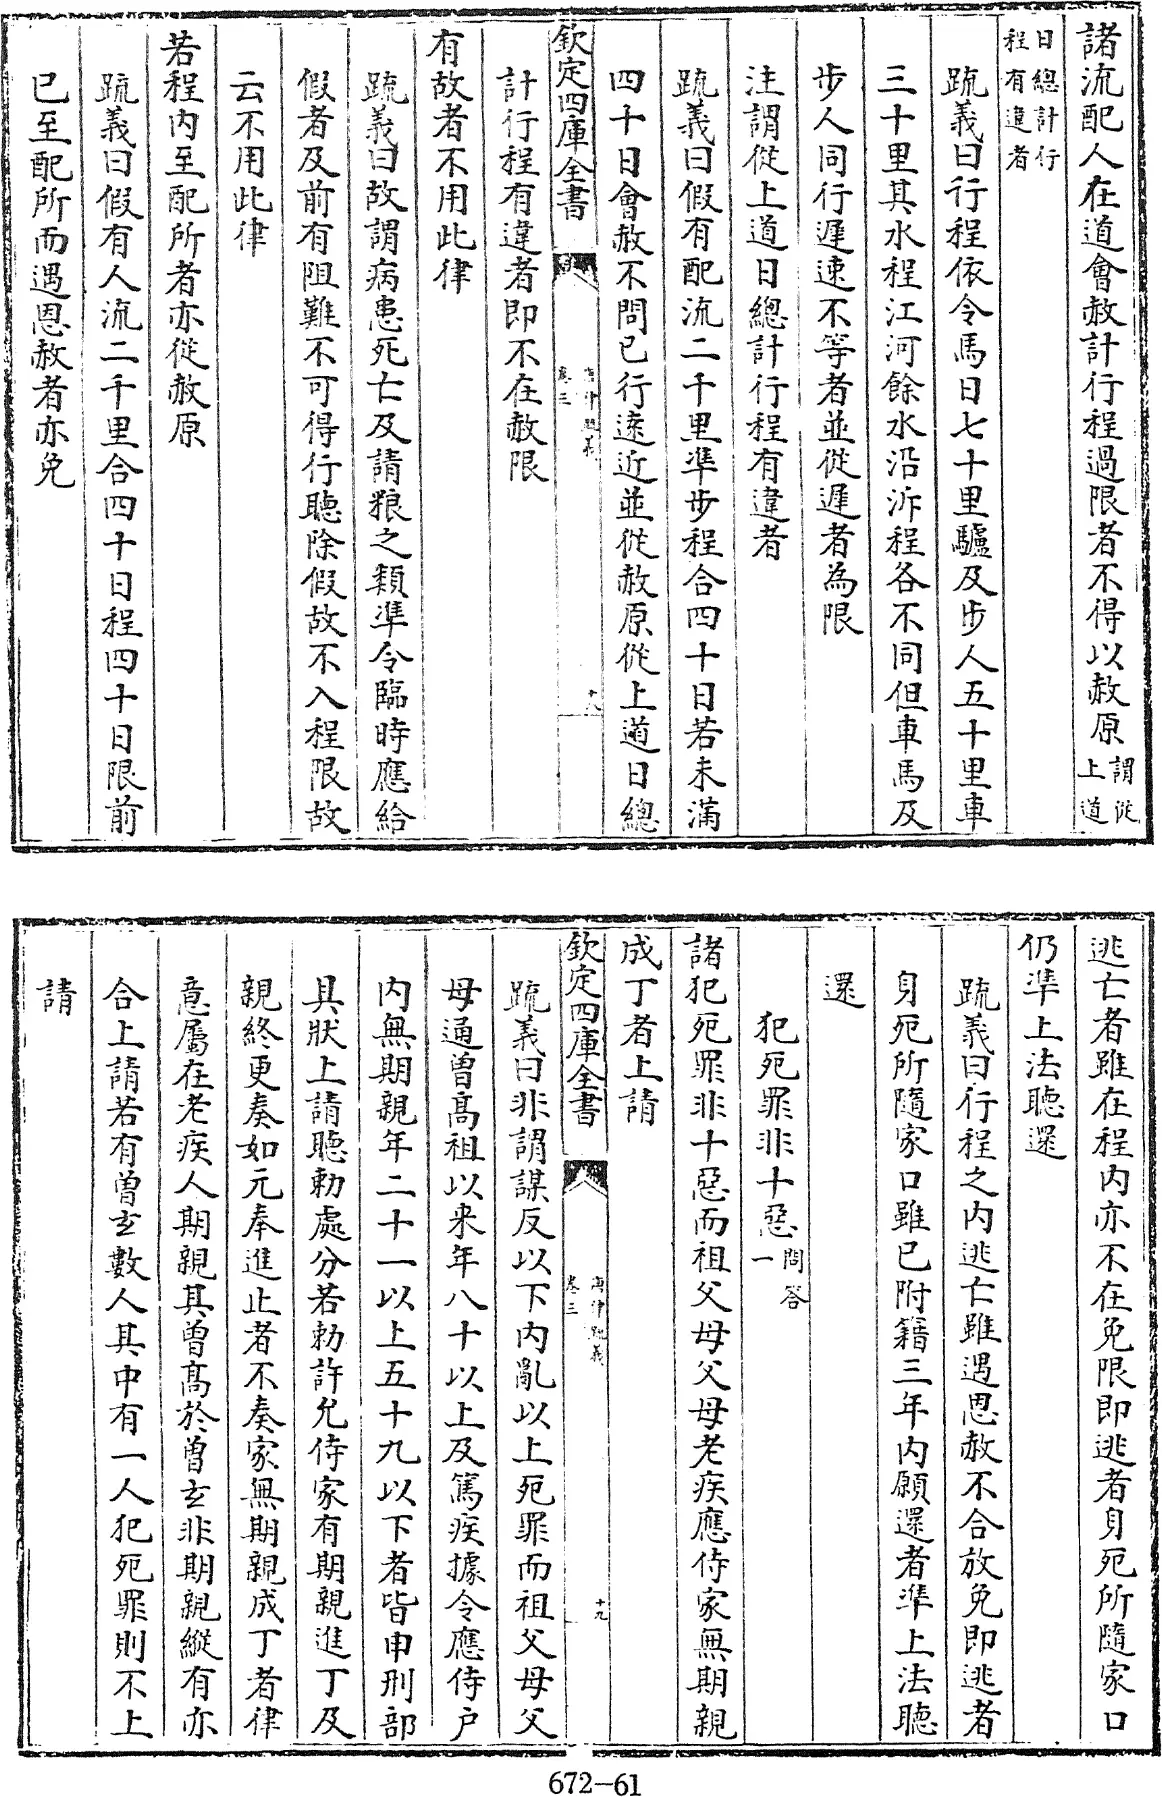 諸流配人在道會赦計行程過限者不得以赦原謂從上道
日總計行程有違者
疏義曰行程依令馬日七十里驢及步人五十里車
三十里其水程江河餘水沿泝程各不同但車馬及
步人同行遲速不等者並從遲者為限
注謂從上道日總計行程有違者
疏義曰假有配流二千里準步程合四十日若未滿
四十日會赦不問已行遠近並從赦原從上道日總
欽定四庫全書
唐律疏義
卷三
十八
計行程有違者即不在赦限
有故者不用此律
疏義曰故謂病患死亡及請粮之類準令臨時應給
假者及前有阻難不可得行聽除假故不入程限故
云不用此律
若程内至配所者亦從赦原
疏義曰假有人流二千里合四十日程四十日限前
已至配所而遇恩赦者亦免
逃亡者雖在程内亦不在免限即逃者身死所隨家口
仍準上法聽還
疏義曰行程之内逃亡雖遇恩赦不合放免即逃者
身死所隨家口雖已附籍三年内願還者準上法聽
還
犯死罪非十惡問答一
諸犯死罪非十惡而祖父母父母老疾應侍家無期親
成丁者上請
欽定四庫全書
唐律疏義
卷三
十九
疏義曰非謂謀反以下内亂以上死罪而祖父母父
母通曾高祖以来年八十以上及篤疾據令應侍户
内無期親年二十一以上五十九以下者皆申刑部
具狀上請聽勅處分若勅許充侍家有期親進丁及
親終更奏如元奉進止者不奏家無期親成丁者律
意屬在老疾人期親其曾高於曾玄非期親縱有亦
合上請若有曾玄數人其中有一人犯死罪則不上
請
672-61